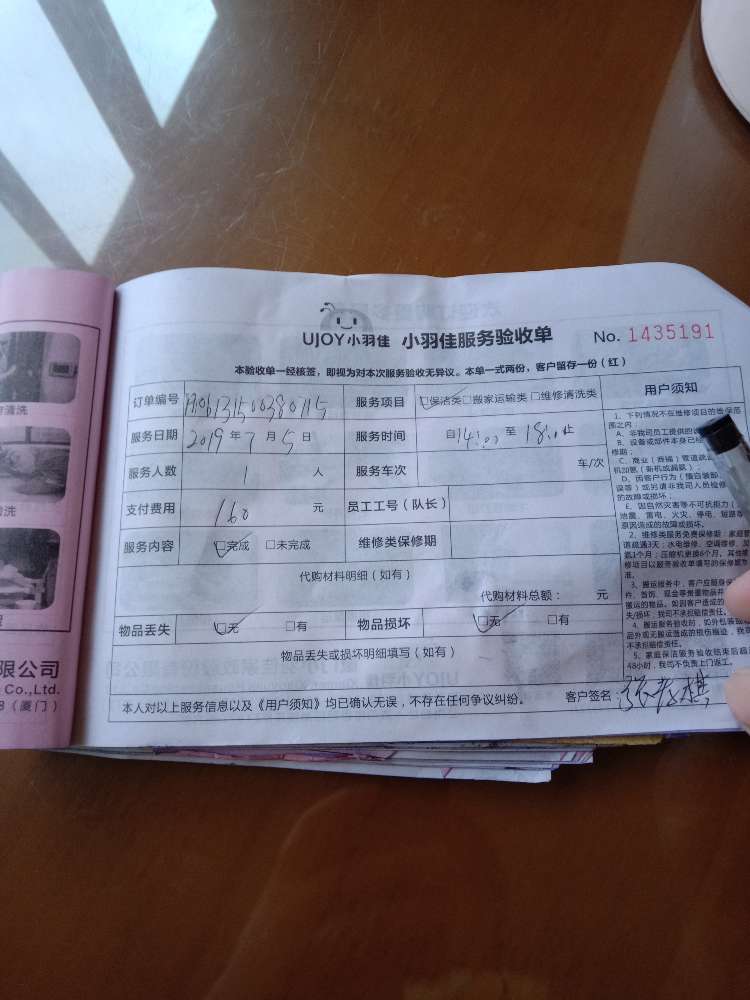 UJOY小羽佳 小羽佳服务验收单 No. 1435191
本验收单一经核签，即视为对本次服务验收无异议。本单一式两份，客户留存一份（红）
订单编号 服务项目 保洁类□搬家运输类□维修清洗类 用户须知
服务日期 2019年7月5日 服务时间 自14:00至18:00止
服务人数 1 人 服务车次 车/次
支付费用 160 元 员工工号（队长）
服务内容 ☑完成 □未完成 维修类保修期
代购材料明细（如有）
代购材料总额： 元
物品丢失 ☑无 □有 物品损坏 ☑无 □有
物品丢失或损坏明细填写（如有）
本人对以上服务信息以及《用户须知》均已确认无误，不存在任何争议纠纷。 客户签名：
1、下列情况不在维修项目的维保范
围之内
A、非我司员工提供的
B、设备或部件本身已
修期；
C、商业（商铺）管道疏
机加氨（新机或漏氨）；
D、因客户行为（擅自装卸
误等）或另请非我司人员检修
的故障或损坏；
E、因自然灾害等不可抗拒力（
地震、雷电、火灾、停电、短路等
原因造成的故障或损坏。
2、维修类服务免费保修期：家庭管
道疏通3天；水电维修、空调维修、加
氨1个月；压缩机更换6个月。其他维
修项目以服务验收单填写的保修期为
准。
3、搬运服务中，客户应随身保
件、首饰、现金等贵重物品并
搬运的物品。如因客户造成的
失/损坏，我司不承担赔偿责任。
4、搬运服务验收时，如外包装或
品外观无搬运造成的损伤痕迹，我司
不承担赔偿责任。
5、家庭保洁服务验收结束后超过
48小时，我司不负责上门返工。
清洗
洗
限公司
Co.,Ltd.
8（厦门）